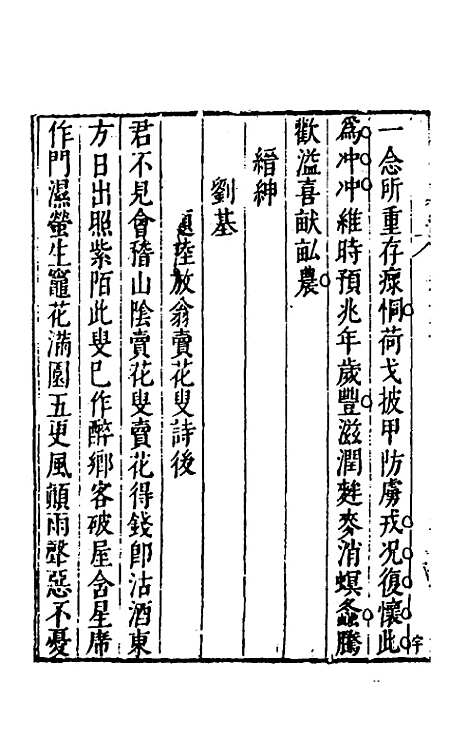 一念所重存瘝恫荷戈披甲防虜戎況復懷此
爲冲冲維時預兆年歲豐滋潤麰麥消螟螽騰
歡溢喜献畆農
縉紳
劉基
題陸放翁賣花叟詩後
君不見會稽山陰賣花叟賣花得錢卽沽酒東
方日出照紫陌此叟已作醉鄉客破屋含星席
作門濕螢生竈花滿園五更風顛雨聲惡不憂